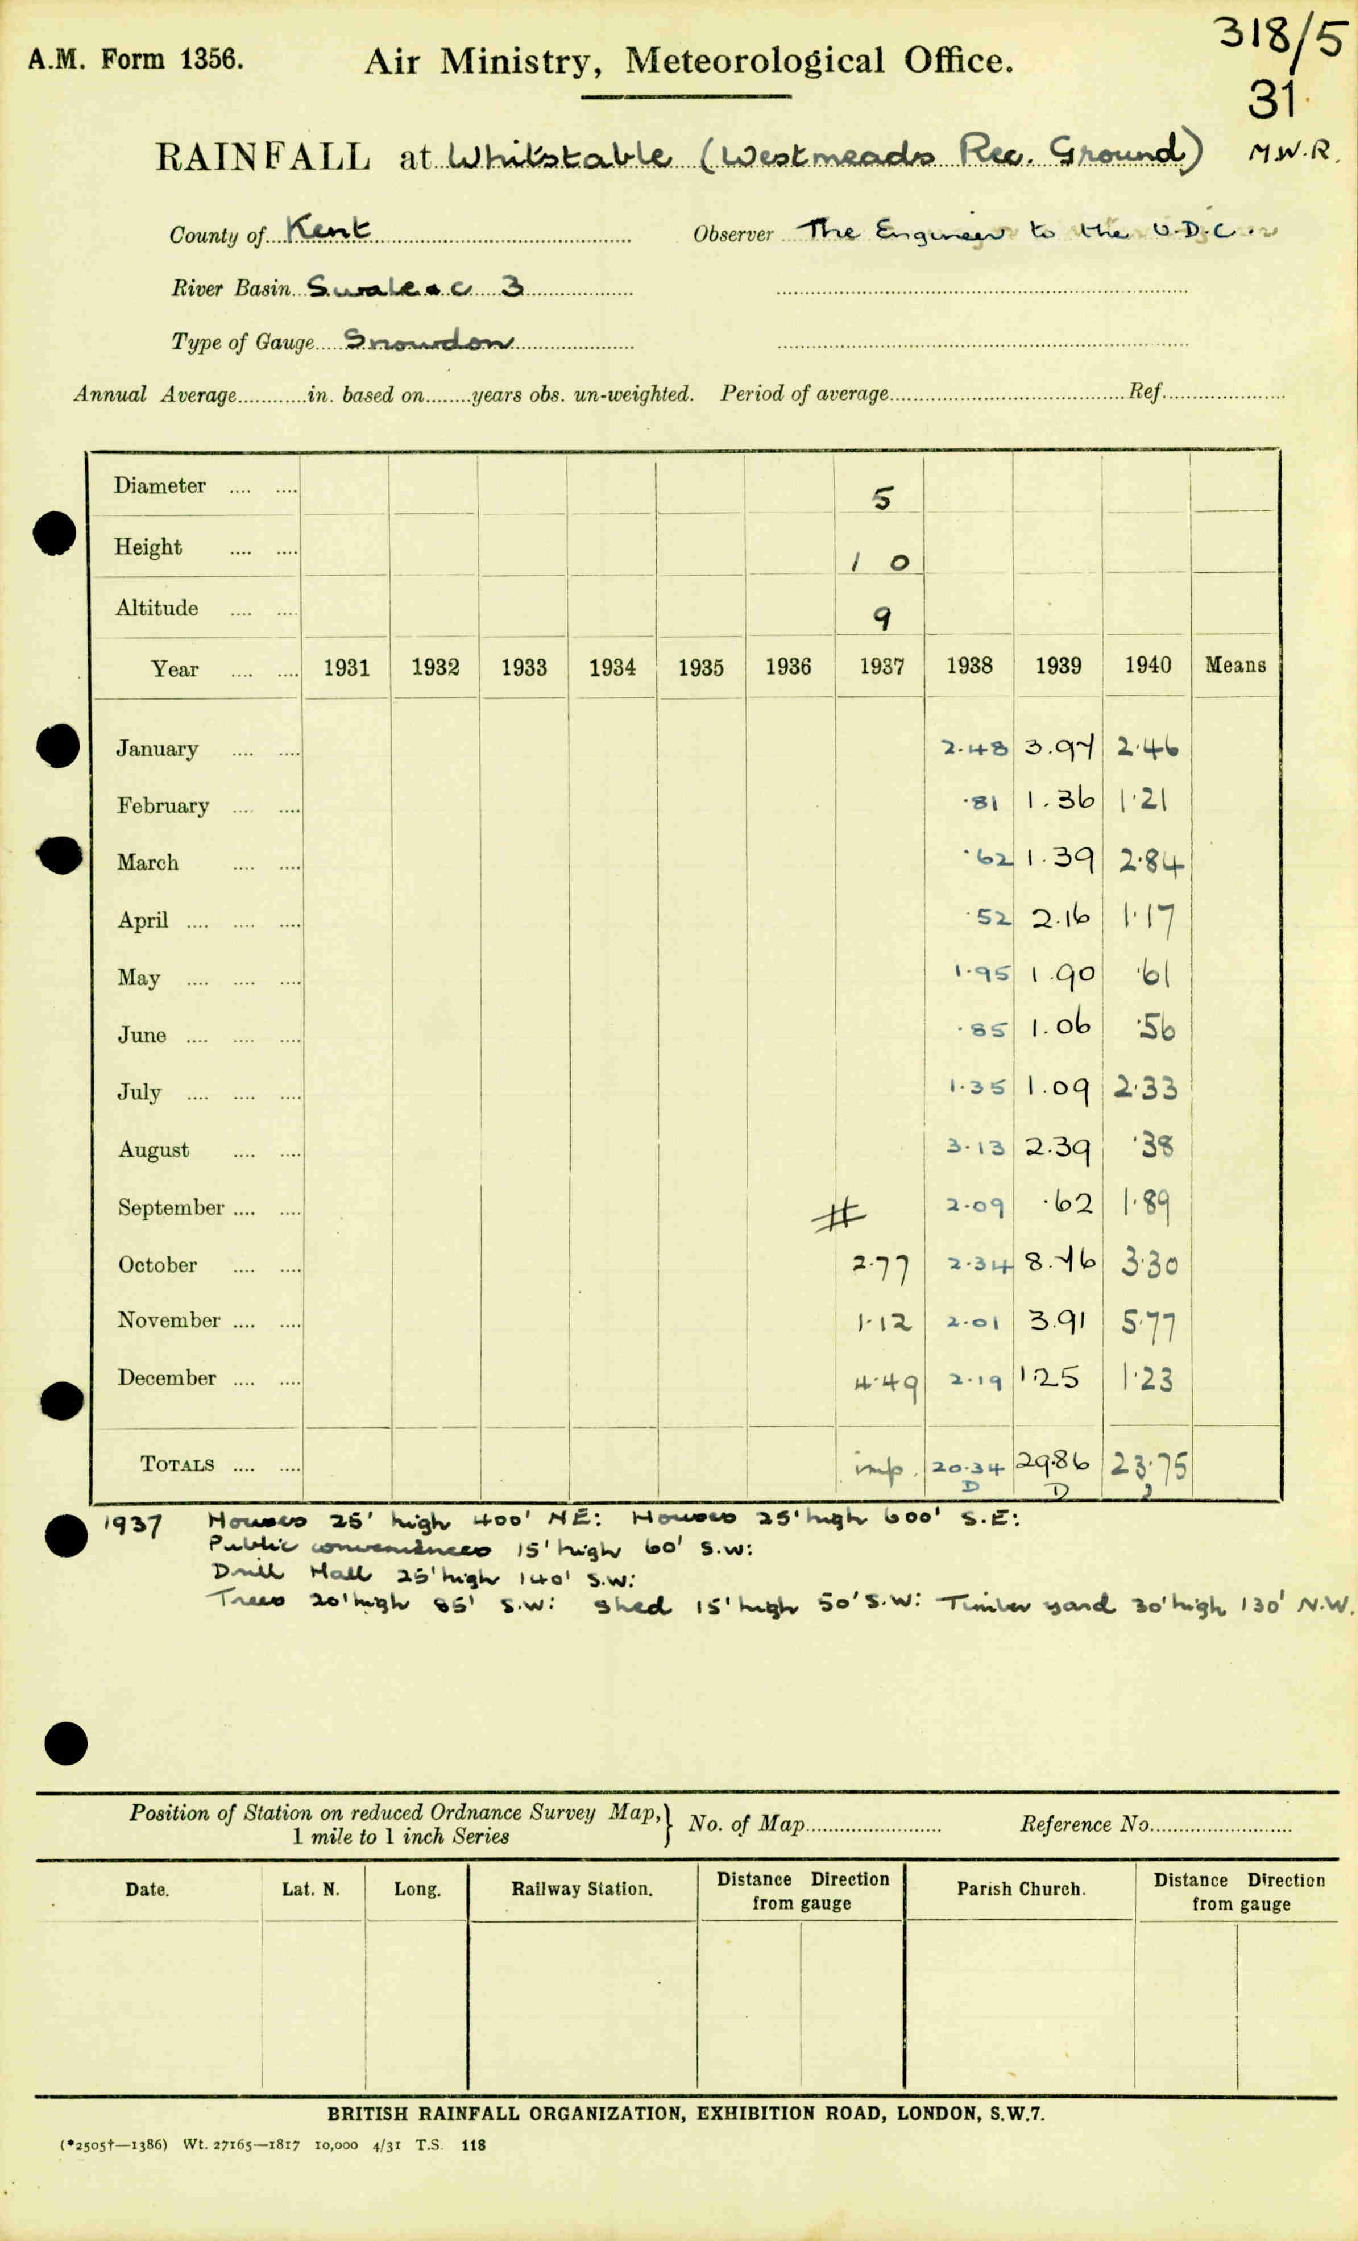 318/5
A.M. Form 1356. Air Ministry, Meteorological Office.
31
RAINFALL at Whitstable (Westmeads Rec. Ground) M.W.R.
County of Kent Observer The Engineer to the U.D.C.
River Basin Swale &c 3
Type of Gauge Snowdon
Annual Average............in. based on........years obs. un-weighted. Period of average........................................Ref.....................
Diameter .... .... 5
Height .... .... 1 0
Altitude .... .... 9
Year .... .... 1931 1932 1933 1934 1935 1936 1937 1938 1939 1940 Means
January .... .... 2.48 3.97 2.46
February .... .... .81 1.36 1.21
March .... .... .62 1.39 2.84
April .... .... .... .52 2.16 1.17
May .... .... .... 1.95 1.90 .61
June .... .... .... .85 1.06 .56
July .... .... .... 1.35 1.09 2.33
August .... .... 3.13 2.39 .38
September .... .... # 2.09 .62 1.89
October .... .... 2.77 2.34 8.76 3.30
November .... .... 1.12 2.01 3.91 5.77
December .... .... 4.49 2.19 1.25 1.23
TOTALS .... .... imp. 20.34 29.86 23.75
D D
1937 Houses 25' high 400' NE: Houses 25' high 600' S.E:
Public conveniences 15' high 60' S.W:
Drill Hall 25' high 140' S.W:
Trees 20' high 85' S.W: Shed 15' high 50' S.W: Timber yard 30' high 130' N.W.
Position of Station on reduced Ordnance Survey Map,} No. of Map......................... Reference No..........................
1 mile to 1 inch Series
Date. Lat. N. Long. Railway Station. Distance Direction from gauge Parish Church. Distance Direction from gauge
BRITISH RAINFALL ORGANIZATION, EXHIBITION ROAD, LONDON, S.W.7.
(*2505†—1386) Wt. 27165—1817 10,000 4/31 T.S. 118